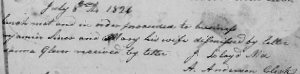 July 8th 1826
Church met and in order proceeded to business
and Mary his wife dismissed by letter
Glover received by letter
J. Lloyd Mod
H. Anderson Clerk